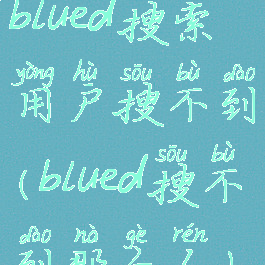 blued搜索
yòng hù sōu bù dào
用户搜不到
sōu bù
(blued搜不
dào nà gè rén
到那个人)